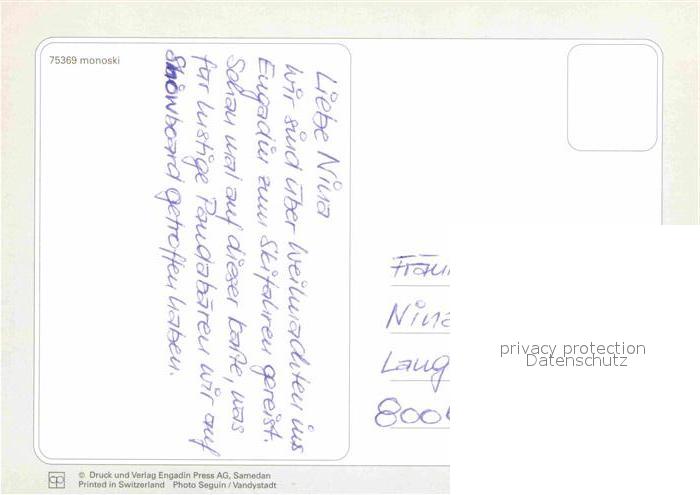 75369 monoski
Liebe Nina
Wir sind über Weihnachten ins
Engadin zum Skifahren gereist.
Schau mal auf dieser Karte, was
für lustige Pandabären wir auf
Snowboard getroffen haben.
Fräu
Nina
Lang
800
privacy protection
Datenschutz
cp
© Druck und Verlag Engadin Press AG, Samedan
Printed in Switzerland Photo Seguin / Vandystadt